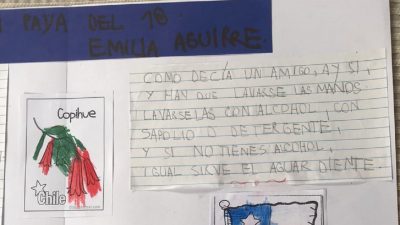 PAYA DEL 18
EMILIA AGUIRRE
COMO DECÍA UN AMIGO, AY SI,
Y HAN QUE LAVARSE LAS MANOS
LAVARSELAS CON ALCOHOL, CON
SAPOLIO O DETERGENTE,
Y SI NO TIENES ALCOHOL,
IGUAL SIRVE EL AGUAR DIENTE.
Copihue
Chile